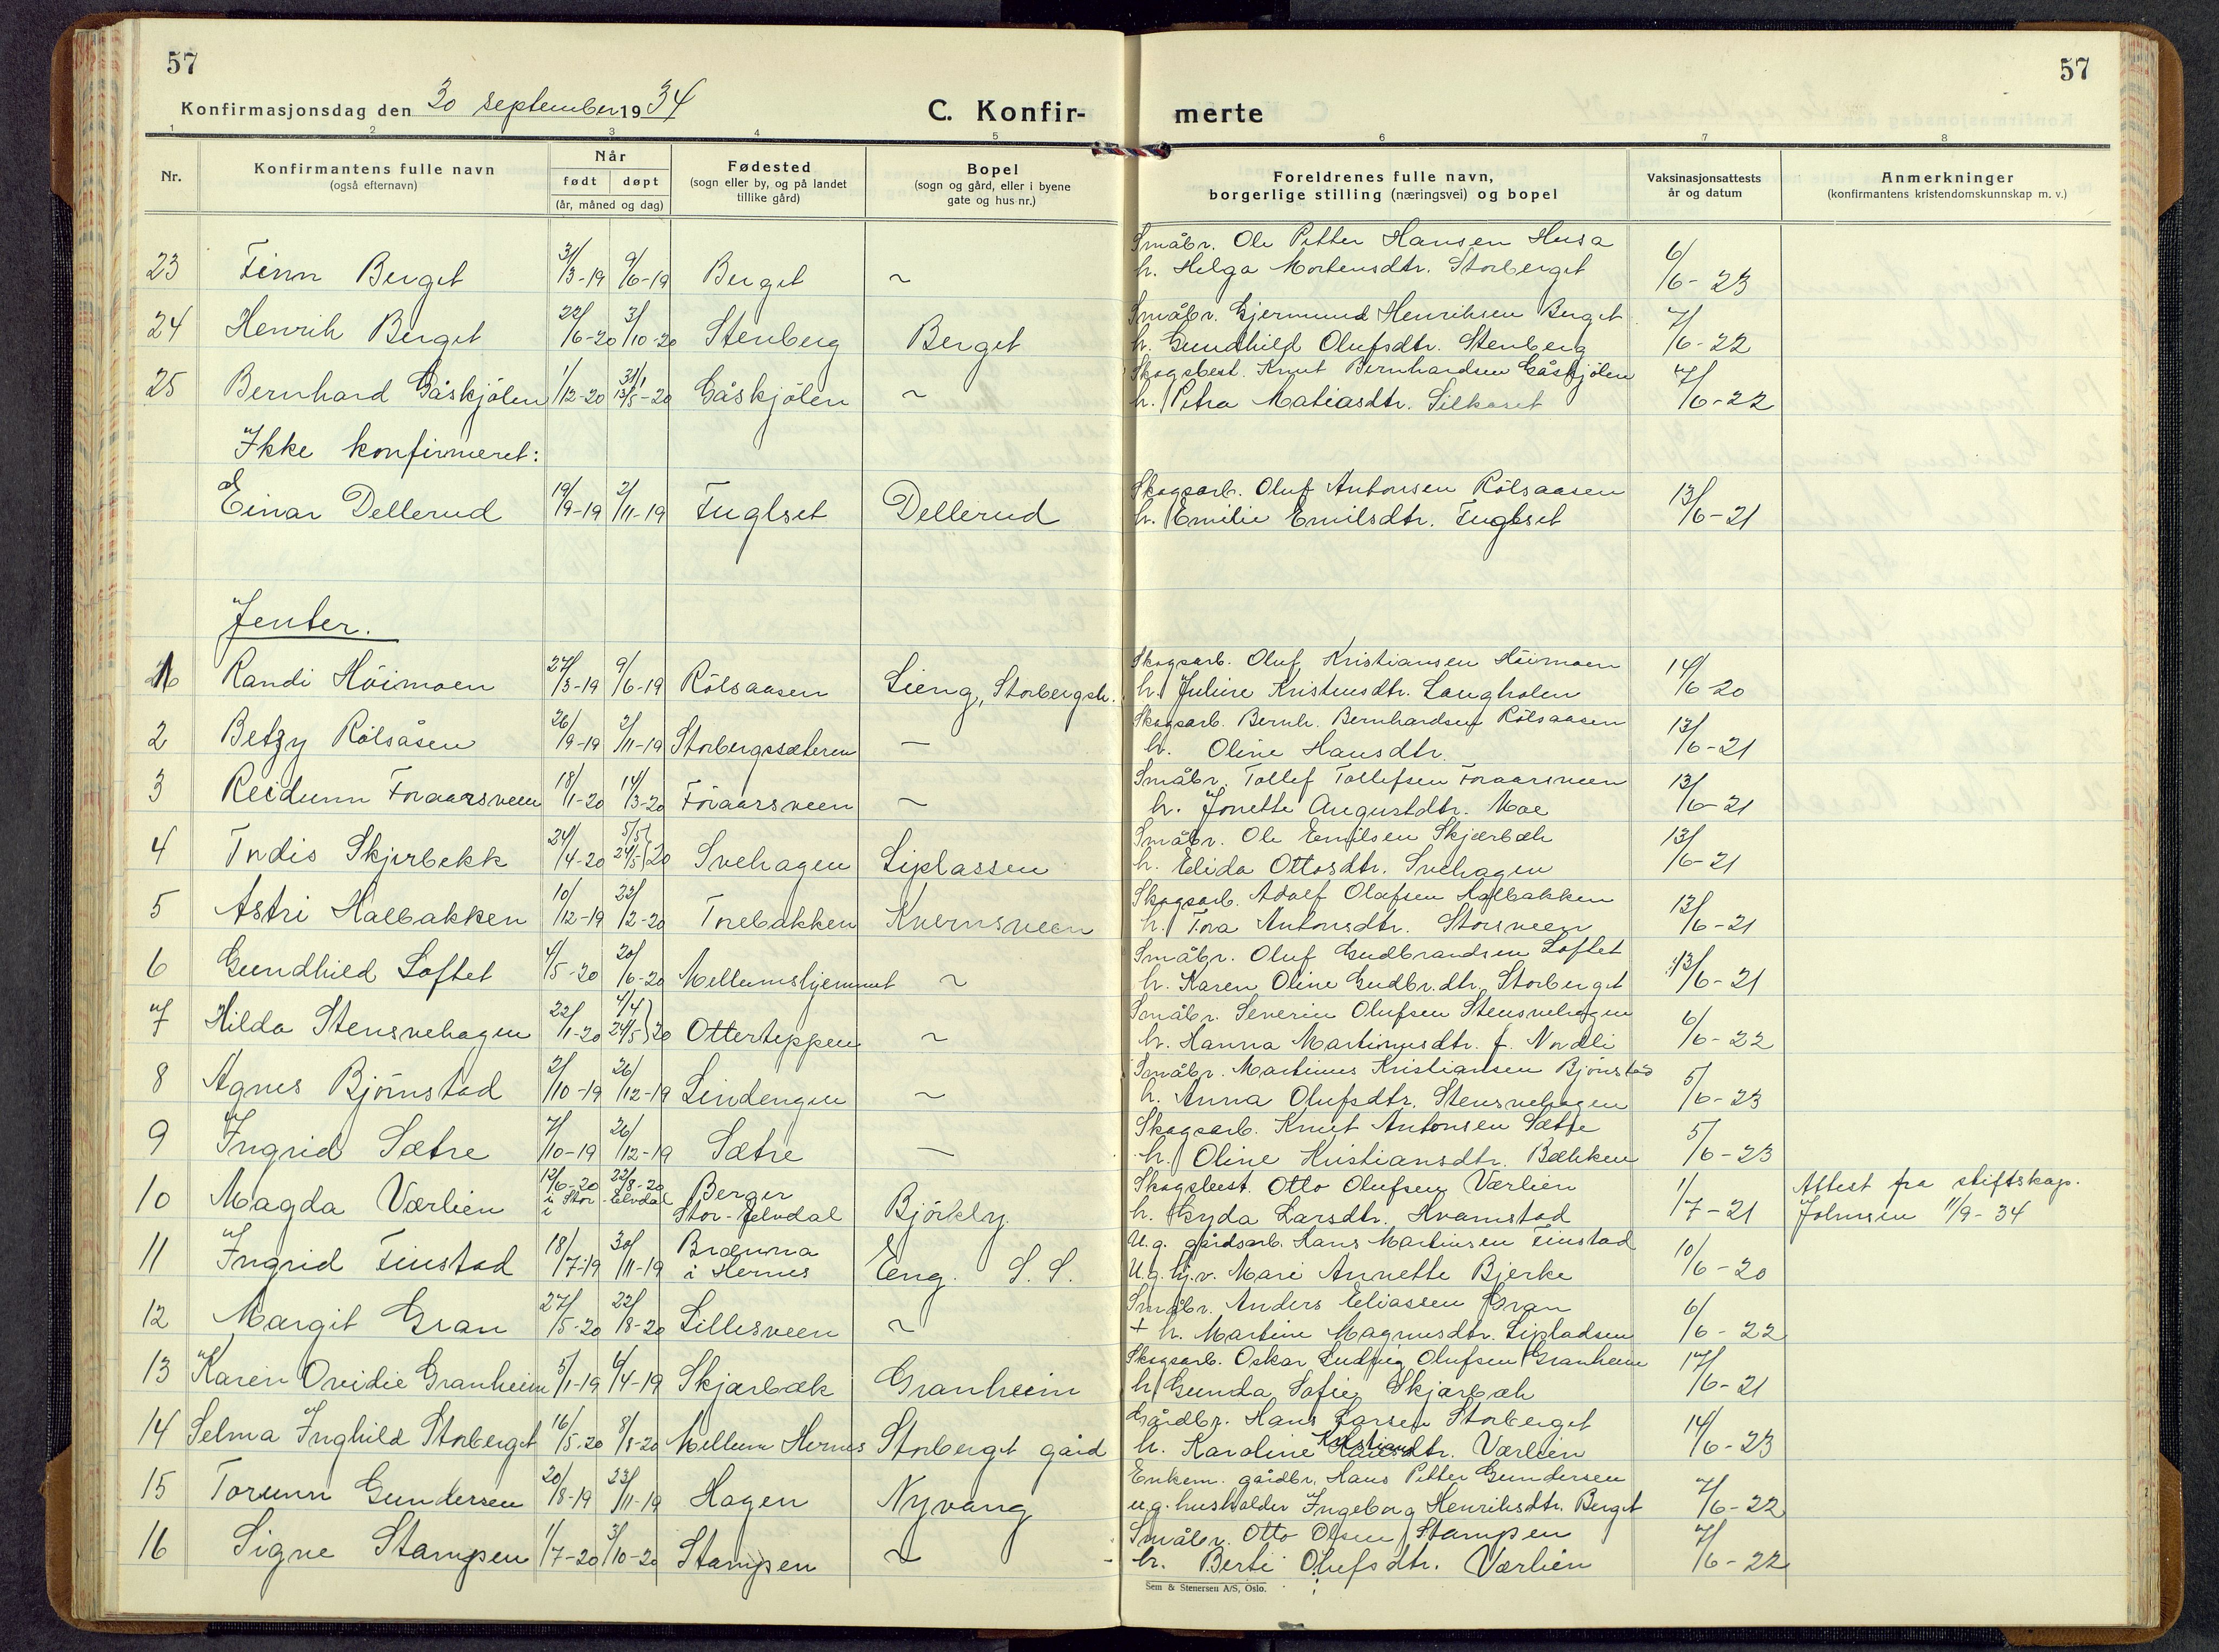 57
57
Konfirmasjonsdag den 30 september 1934
C. Konfirmerte
1 2 3 4 5 6 7 8
Nr.
Konfirmantens fulle navn
(også efternavn)
Når
født døpt
(år, måned og dag)
Fødested
(sogn eller by, og på landet
tillike gård)
Bopel
(sogn og gård, eller i byene
gate og hus nr.)
Foreldrenes fulle navn,
borgerlige stilling (næringsvei) og bopel
Vaksinasjonsattests
år og datum
Anmerkninger
(konfirmantens kristendomskunnskap m. v.)
Småbr. Ole Petter Hansen Husa
23 Finn Berget 31/3-19 9/6-19 Berget ~ h. Helga Mortensdtr. Storberget 6/6-23
Småbr. Gjermund Henriksen Berget
24 Henrik Berget 22/6-20 3/10-20 Stenberg Berget h. Gundhild Olufsdtr. Stenberg 7/6-22
Skogsbest. Knut Bernhardsen Gåskjølen
25 Bernhard Gåskjølen 1/12-20 Gåskjølen ~ h. Petra Matiasdtr. Silkoset 7/6-22
Ikke konfirmeret:
Skogsarb. Oluf Antonsen Rölsaasen
Einar Dellerud 19/9-19 2/11-19 Fuglset Dellerud h. Emilie Emilsdtr. Fuglset 13/6-21
Jenter.
Skogsarb. Oluf Kristiansen Höimoen
1 Randi Höimoen 27/3-19 9/6-19 Rölsaasen Lieng, Storbergsk. h. Juline Kristensdtr. Langholen 14/6-20
Skogsarb. Bernh. Bernhardsen Rölsaasen
2 Betzy Rölsåsen 26/9-19 2/11-19 Storbergssæteren — h. Oline Hansdtr. 13/6-21
Småbr. Tollef Tollefsen Foraarsveen
3 Reidunn Foraarsveen 18/1-20 14/3-20 Foraarsveen ~ h. Jonette Augustdtr. Moe 13/6-21
Småbr. Ole Emilsen Skjærbæk
4 Tndis Skjærbekk 24/4-20 5/5 24/5}20 Svehagen Liplassen h. Elida Ottosdtr. Svehagen 13/6-21
Skogsarb. Adolf Olafsen Halbakken
5 Astri Halbakken 10/12-19 22/2-20 Torebakken Kvernsveen h. Tora Antonsdtr. Storsveen 13/6-21
Småbr. Oluf Gudbrandsen Loftet
6 Gundhild Loftet 4/5-20 20/6-20 Mellemshjemmet ~ h. Karen Oline Gudbr.dtr. Storberget 13/6-21
Småbr. Severin Olufsen Stensvehagen
7 Hilda Stensvehagen 22/1-20 4/4 24/5}20 Otterteppen ~ h. Hanna Martinusdtr. f. Nordli 6/6-22
Småbr. Martinus Kristiansen Björnstad
8 Agnes Björnstad 2/10-19 26/12-19 Lindengen ~ h. Anna Olufsdtr. Stensvehagen 5/6-23
Skogsarb. Knut Antonsen Sætre
9 Ingrid Sætre 7/10-19 26/12-19 Sætre — h. Oline Kristiansdtr. Bækken 5/6-23
12/6-20 22/8-20 Berger Skogsbest. Otto Olufsen Værlien Attest fra stiftskap.
10 Magda Værlien i Stor-Elvdal Stor-Elvdal Björkly h. Kyda Larsdtr. Kvamstad 1/7-21 Johnsen 11/9-34
U.g. gårdsarb. Hans Martinsen Finstad
11 Ingrid Finstad 18/7-19 30/11-19 Brænna i Hernes Eng. S. S. U.g. hj.v. Mari Annette Bjerke 10/6-20
Småbr. Anders Eliassen Gran
12 Margit Gran 27/5-20 22/8-20 Lillesveen ~ + h. Martine Magnusdtr. Lipladsen 6/6-22
Skogsarb. Oskar Ludvig Olufsen Granheim
13 Karen Ovidie Granheim 5/1-19 6/4-19 Skjærbæk Granheim h. Gunda Sofie Skjærbæk 17/6-21
Gårdbr. Hans Larsen Storberget
14 Selma Inghild Storberget 16/5-20 8/8-20 Mellem Hernes Storberget gård h. Karoline Kristiansdtr. Værlien 14/6-23
Enkem. gårdbr. Hans Petter Gundersen
15 Torunn Gundersen 20/8-19 23/11-19 Hagen Nyvang u.g. husholder Ingeborg Henriksdtr. Berget 7/6-22
Småbr. Otto Olsen Stampen
16 Signe Stampen 1/7-20 3/10-20 Stampen ~ h. Berti Olufsdtr. Værlien 7/6-22
Sem & Stenersen A/S, Oslo.